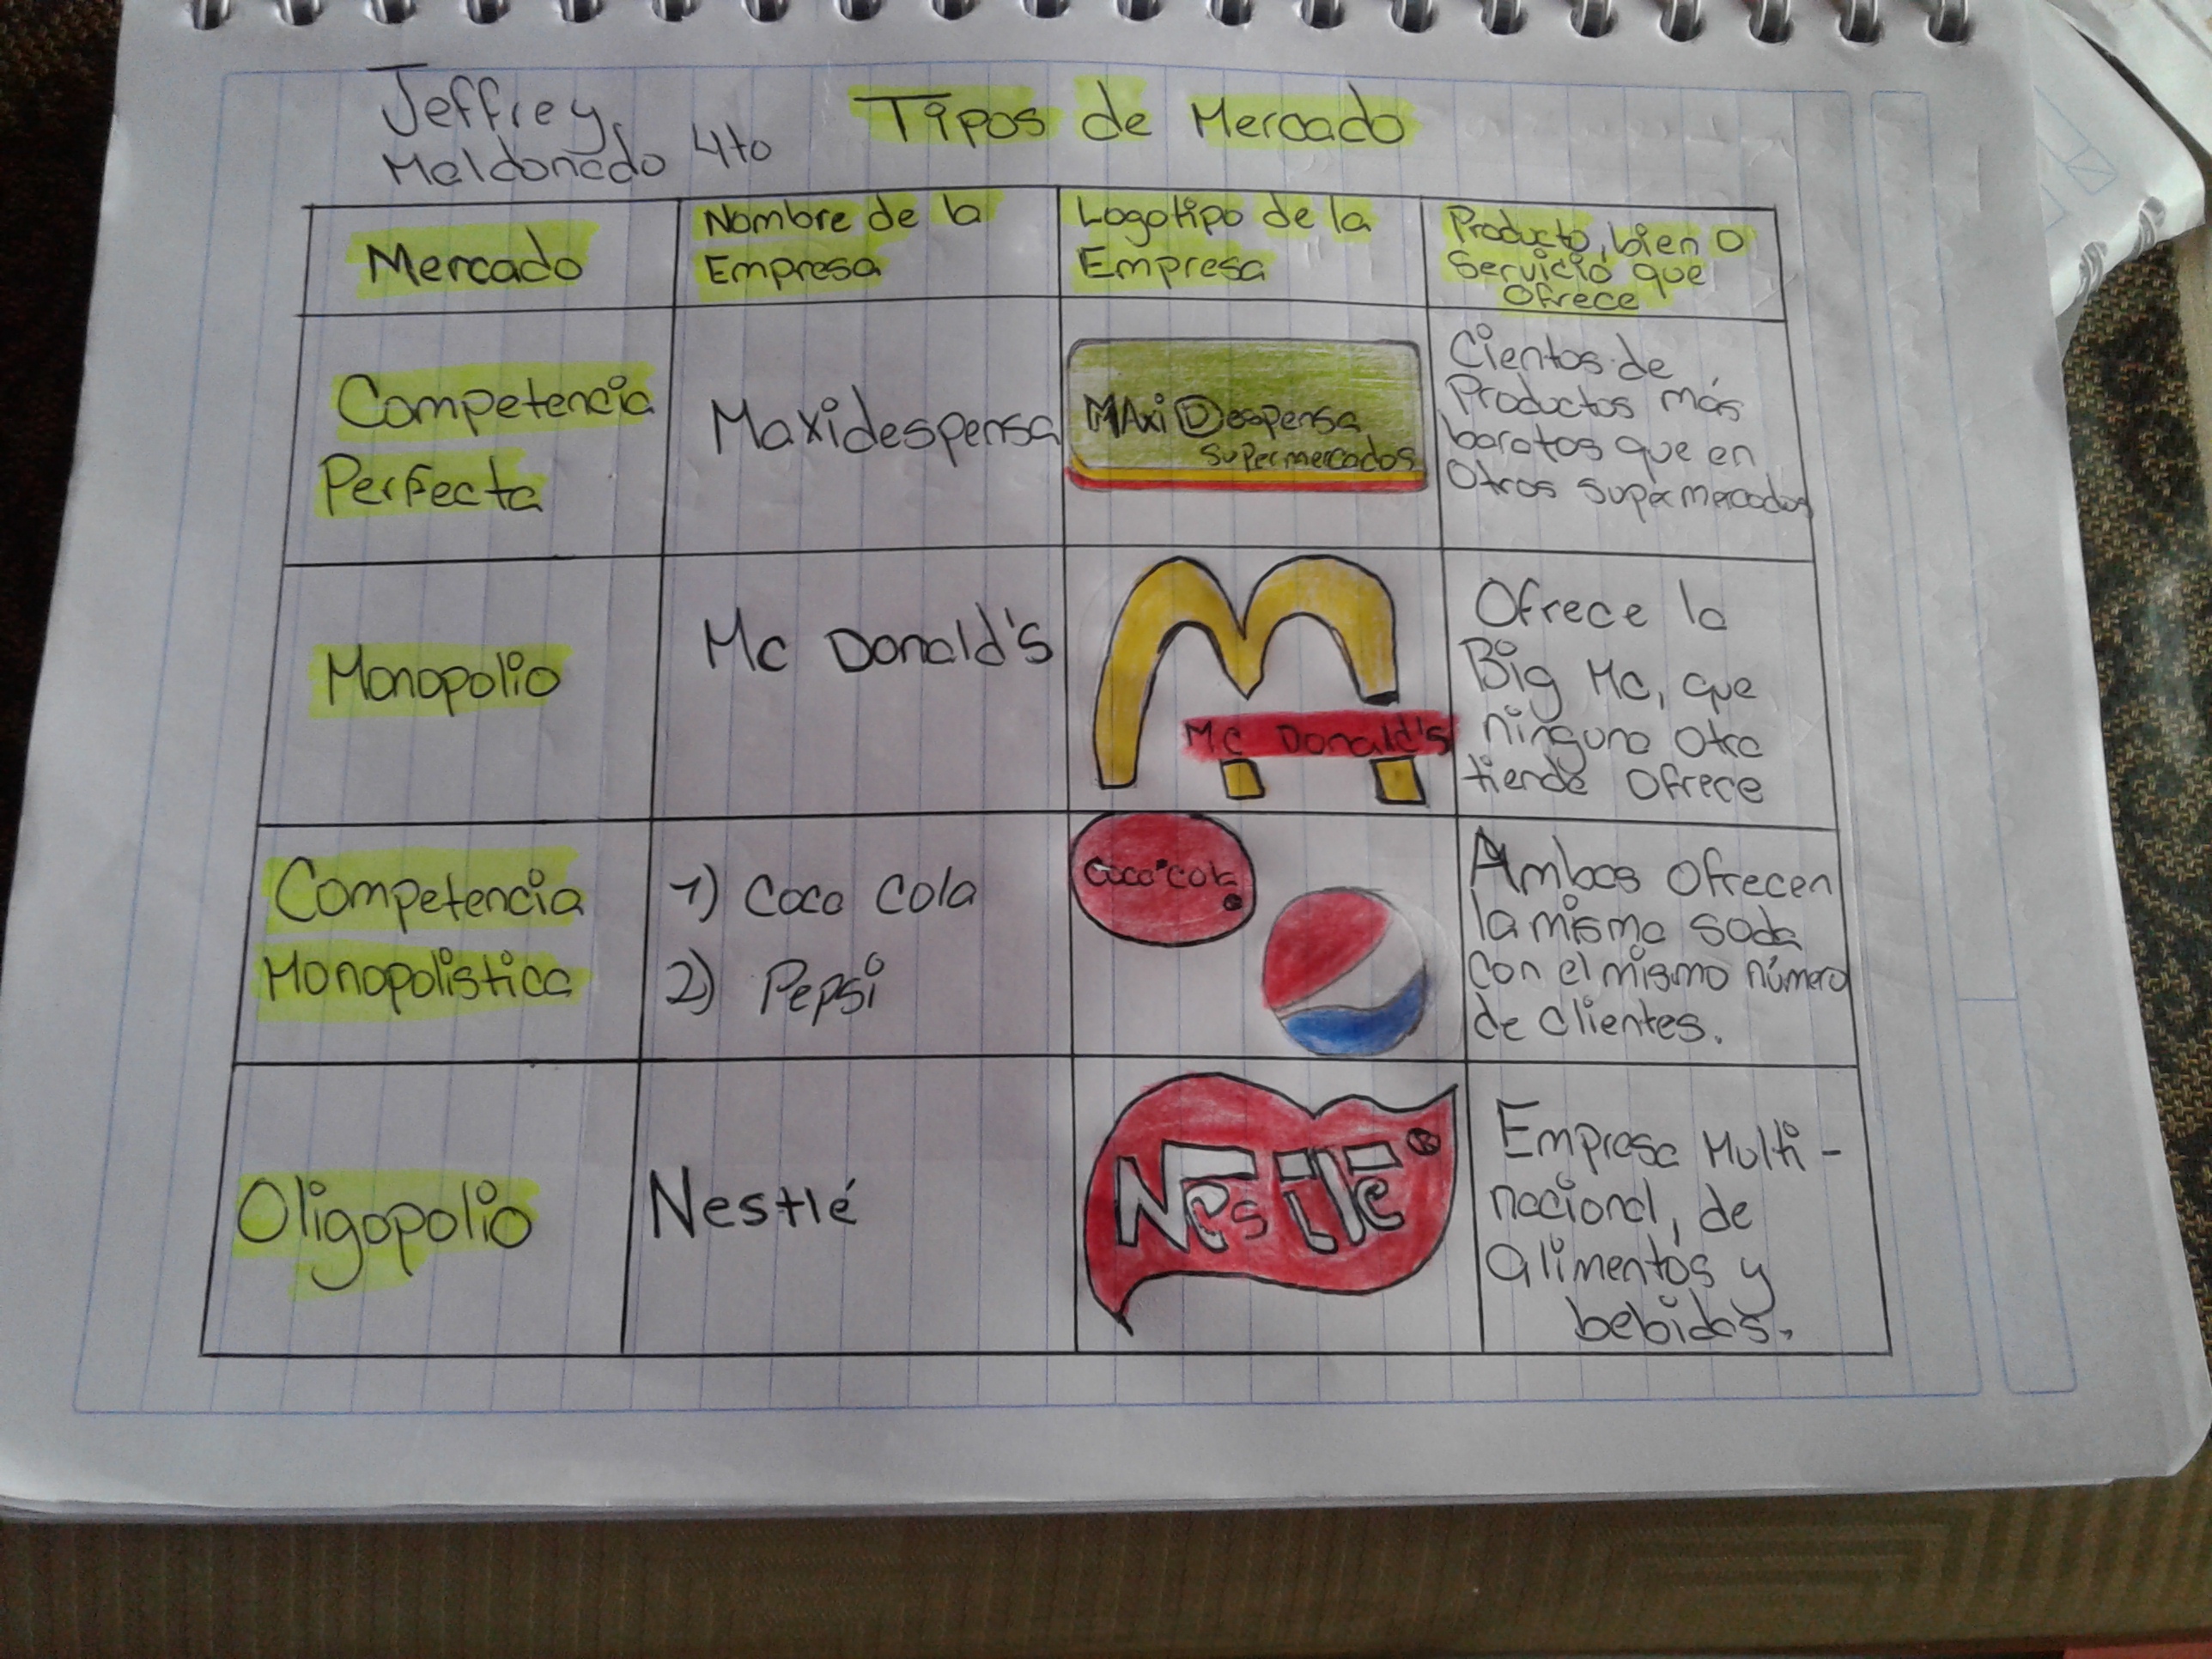 Jeffrey
Maldonado 4to
Tipos de Mercado
Mercado
Nombre de la
Empresa
Logotipo de la
Empresa
Producto, bien o
Servicio que
ofrece
Competencia
Perfecta
Maxidespensa
MAxi Despensa
Supermercados
Cientos de
Productos más
baratos que en
Otros supermercados
Monopolio
Mc Donald's
Mc Donald's
Ofrece la
Big Mc, que
ninguna otra
tienda ofrece
Competencia
Monopolistica
1) Coca Cola
2) Pepsi
Coca Cola
Ambas ofrecen
la misma soda
con el mismo número
de clientes.
Oligopolio
Nestlé
Nestlé ®
Empresa Multi-
nacional, de
alimentos y
bebidas.